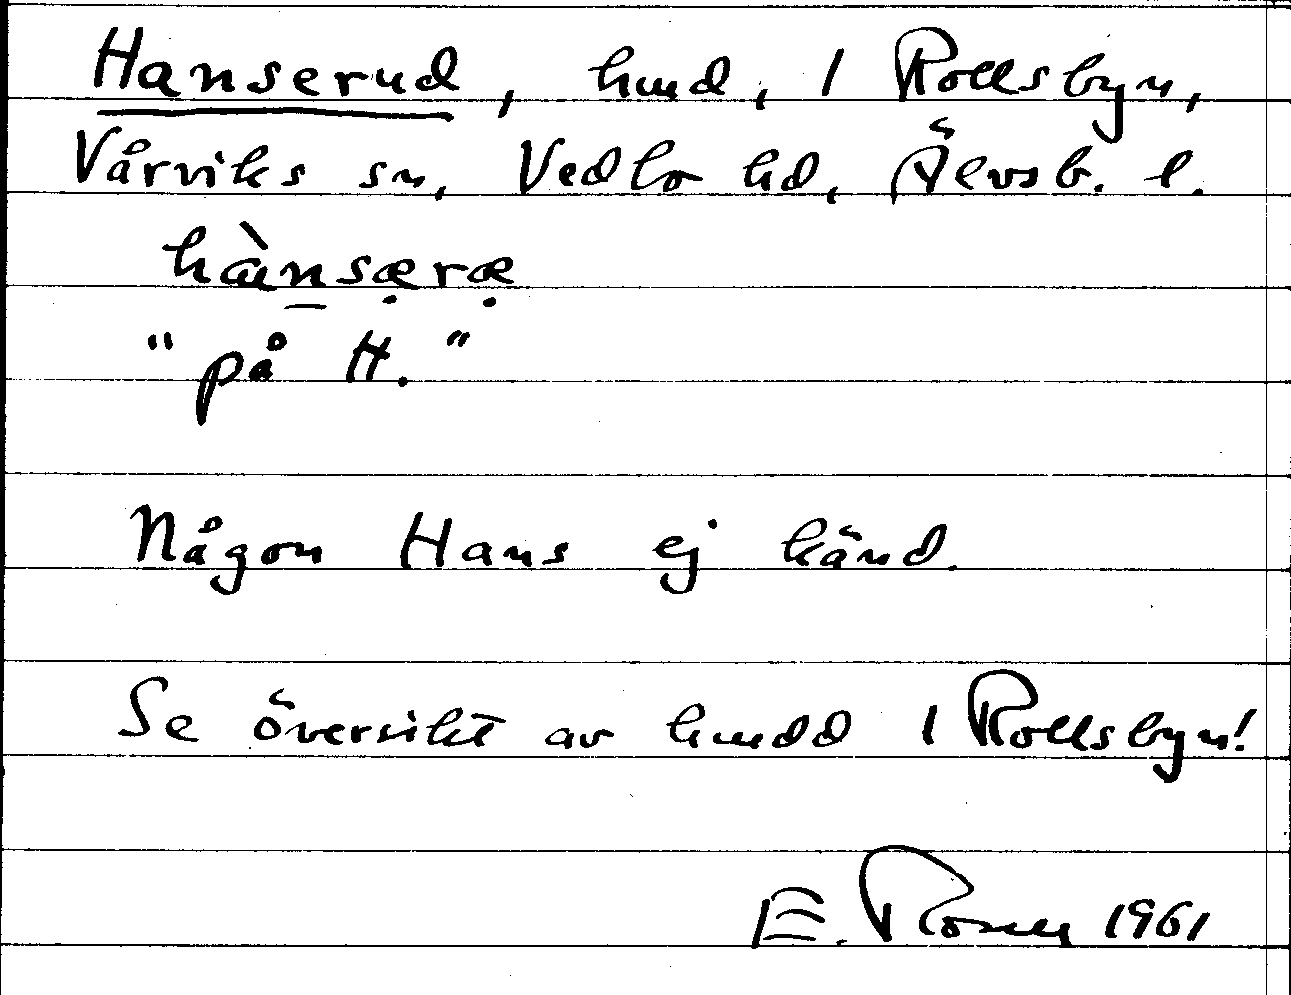 Hanserud, hmd, i Rollsbyn,
Vårviks sn, Vedbo hd, Älvsb. l.
hæ̀nsæræ
"på H."
Någon Hans ej känd.
Se översikt av hmdd i Rollsbyn!
E. Rosell 1961